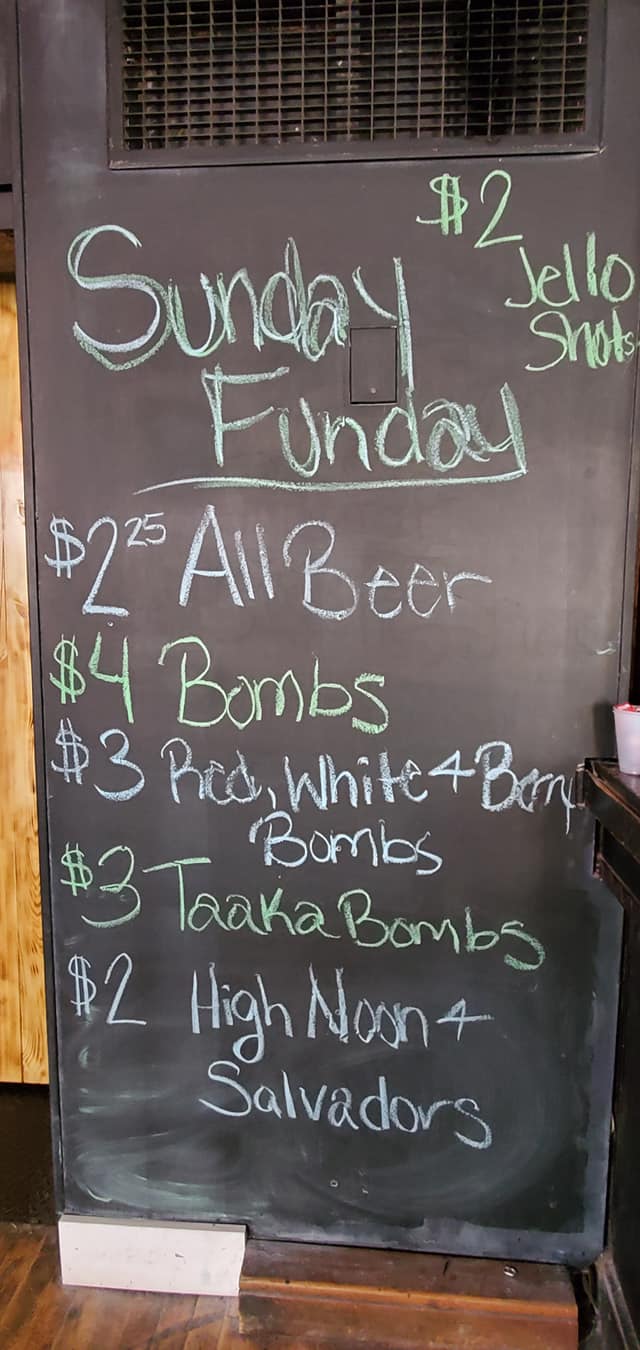 $2
Jello
Shots
Sunday
Funday
$2.25 All Beer
$4 Bombs
$3 Red, White & Berry
Bombs
$3 Taaka Bombs
$2 High Noon &
Salvadors